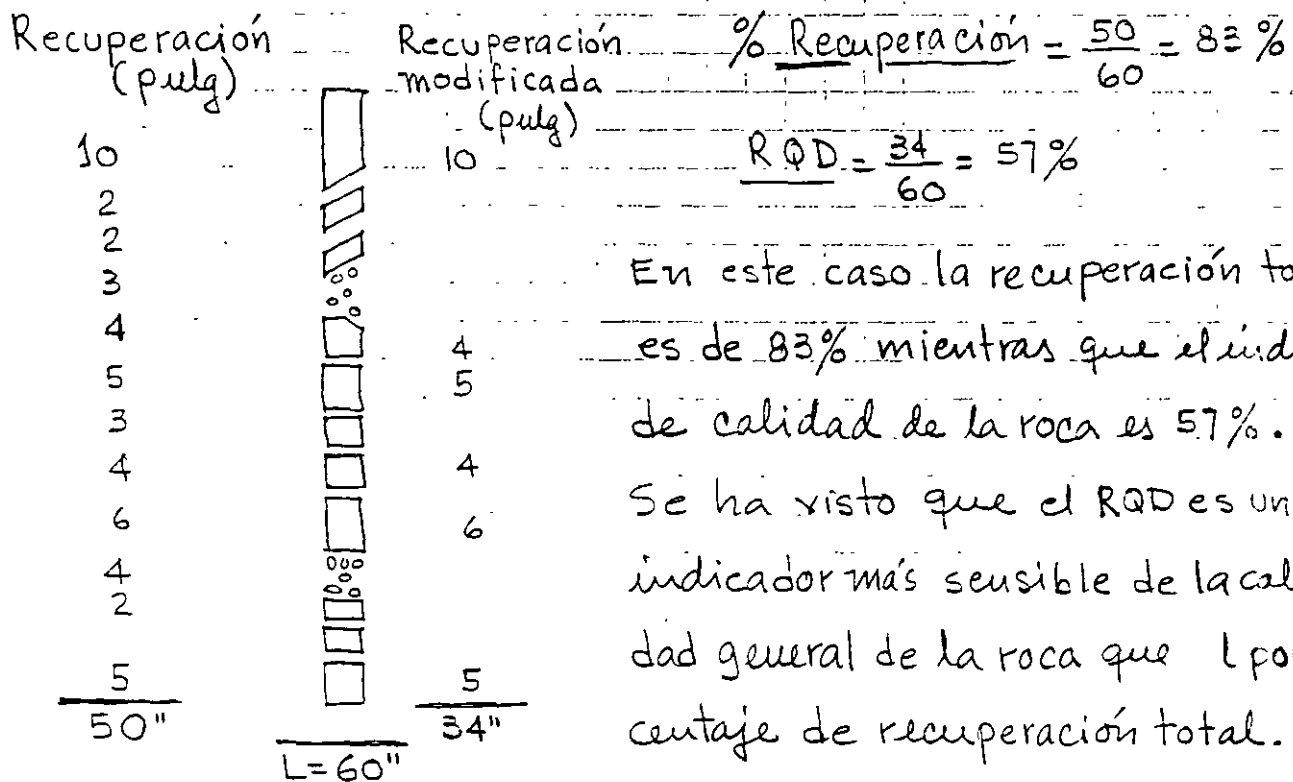 Recuperación
(pulg)
10
2
2
3
4
5
3
4
6
4
2
5
50"
L=60"
Recuperación
modificada
(pulg)
10
4
5
4
6
5
34"
% Recuperación = 50/60 = 83 %
RQD = 34/60 = 57%
En este caso la recuperación to
es de 83% mientras que el índ
de calidad de la roca es 57%.
Se ha visto que el RQD es un
indicador más sensible de la cal
dad general de la roca que l po
centaje de recuperación total.